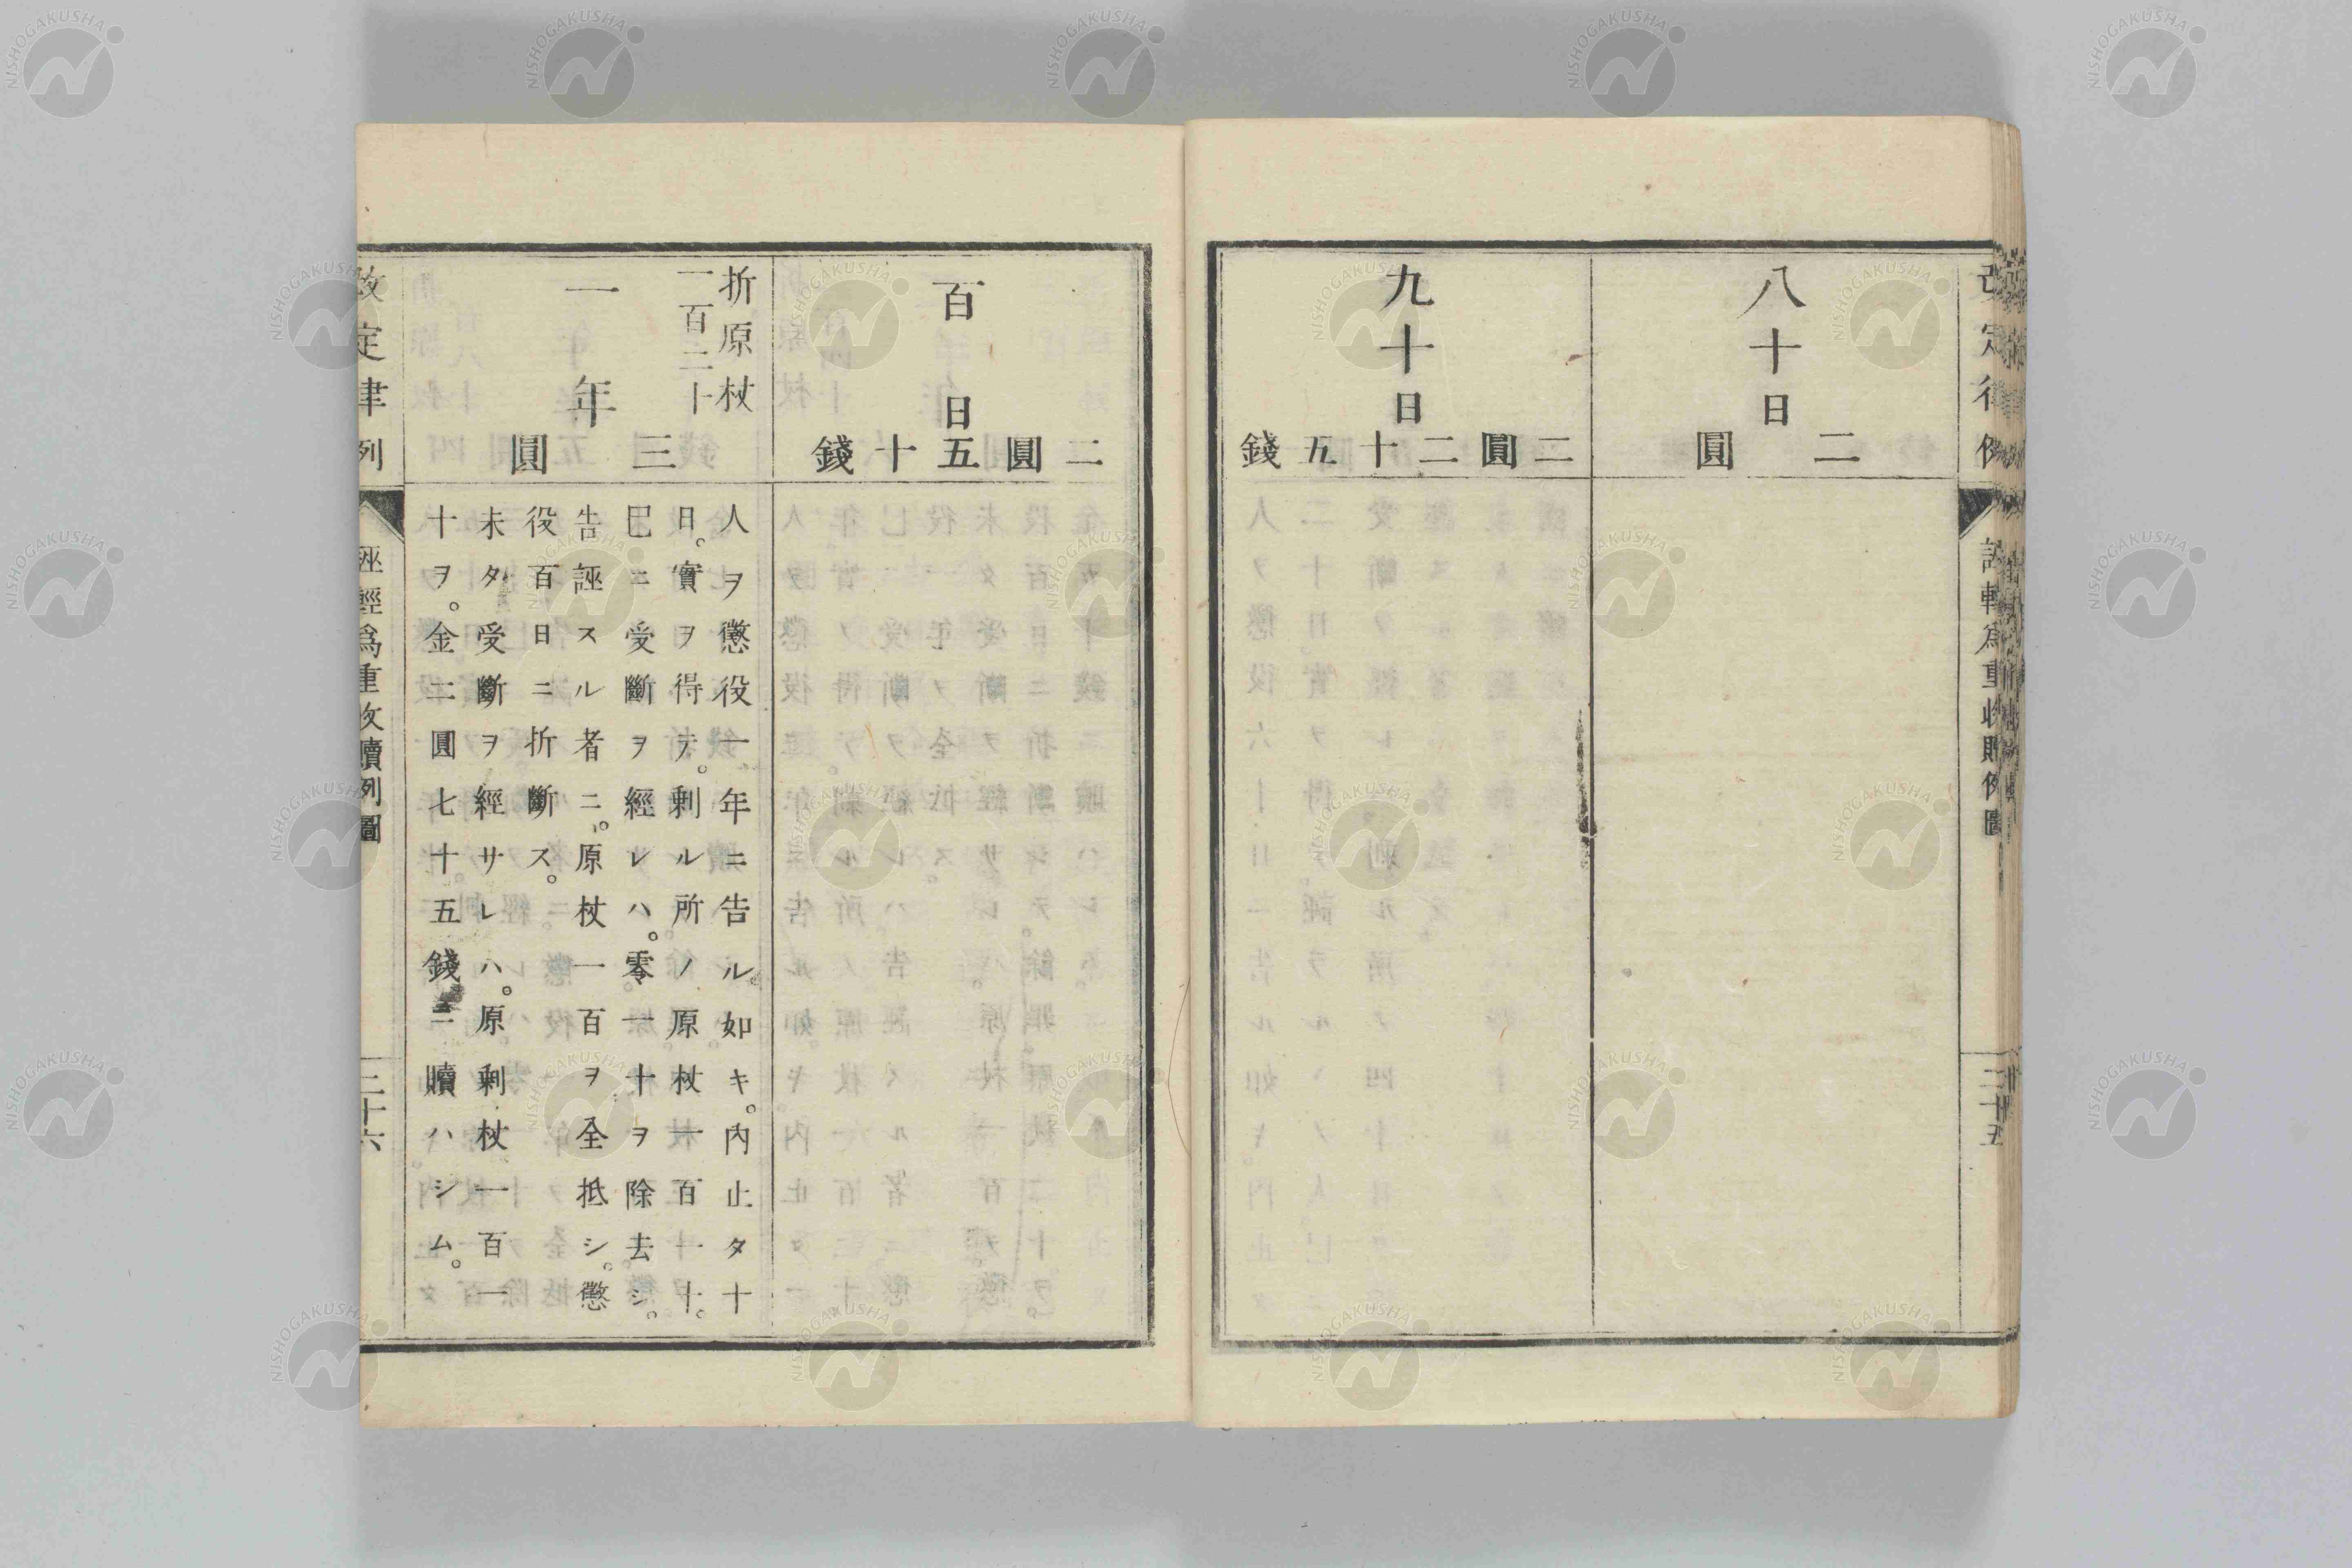 八十日
二圓
九十日
二圓二十五錢
百日
二圓五十錢
折原杖
一百二十
一年
三圓
人ヲ懲役一年ニ告ル如キ。内止タ十
日。實ヲ得テ。剩ル所ノ原杖一百一十。
巳ニ受斷ヲ經レハ。零一十ヲ除去シ。
告誣スル者ニ。原杖一百ヲ全抵シ。懲
役百日ニ折斷ス。
未タ受斷ヲ經サレハ。原剩杖一百一
十ヲ。金二圓七十五錢ニ贖ハシム。
改定律例
誣輕爲重收贖例圖
二十六
NISHOGAKUSHA